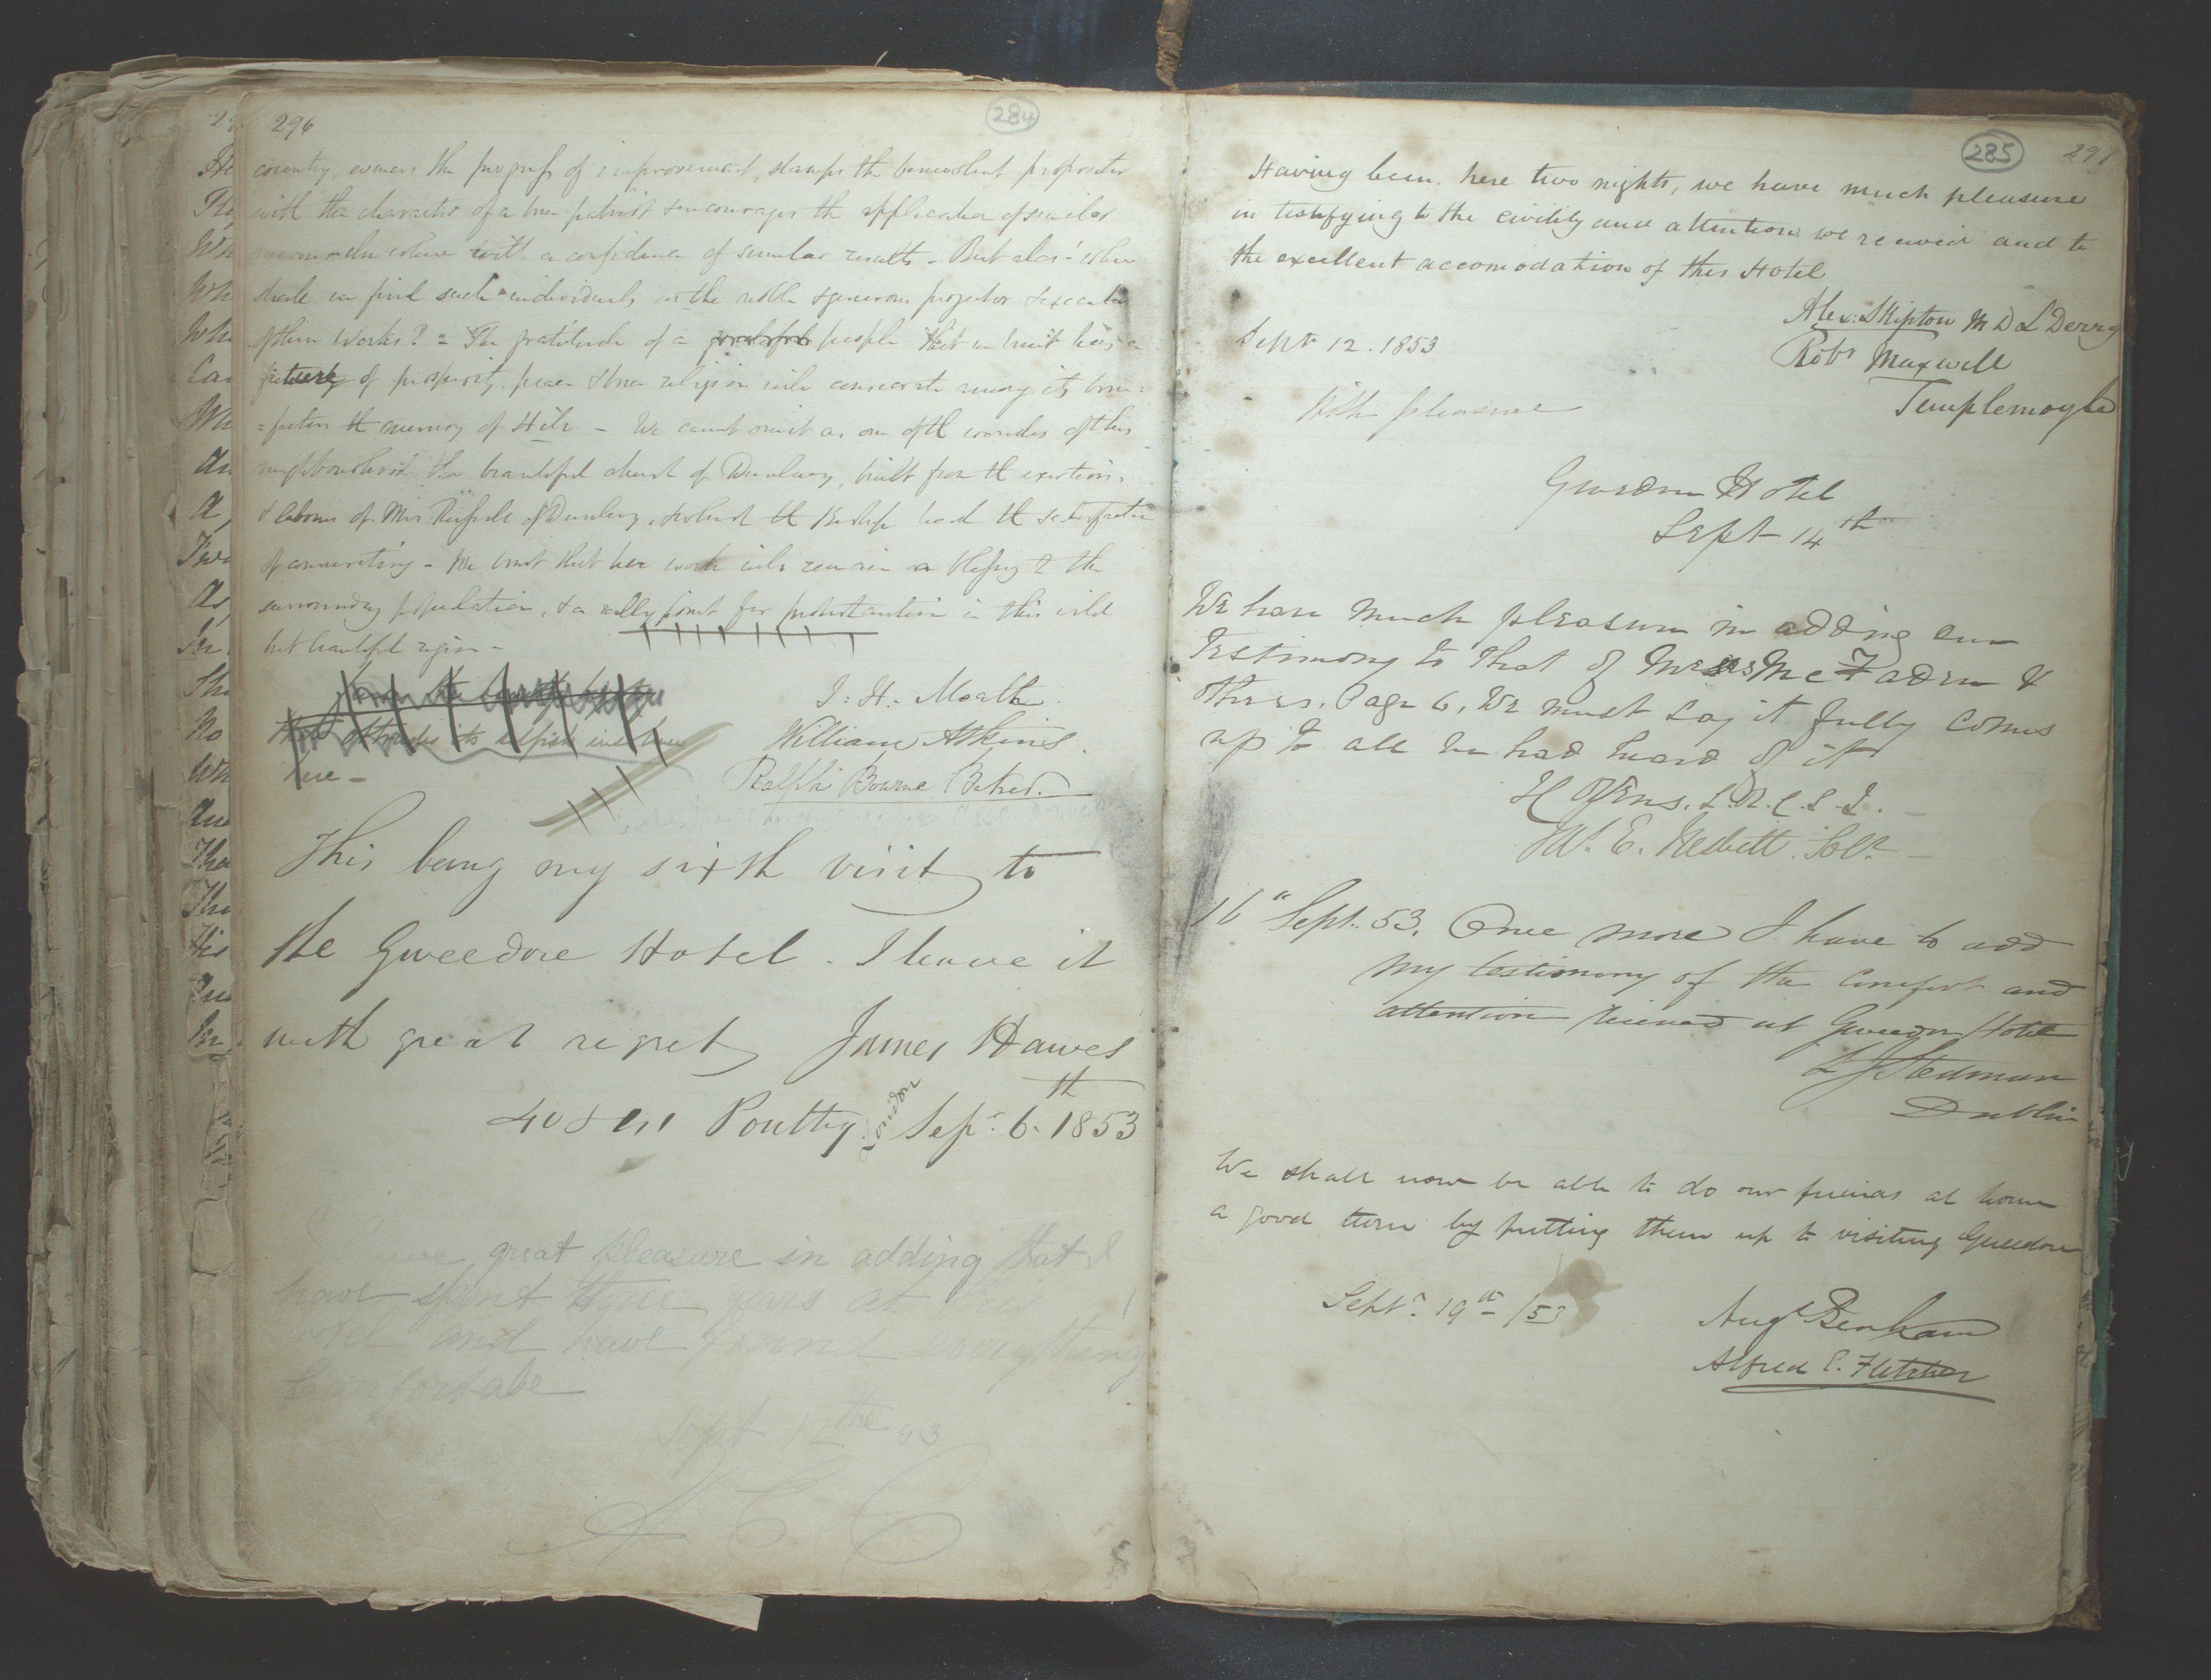 296
284
country, the progress of improvement, stamps the benevolent proprietor
with the character of a true patriot & encourages the application of similar
with a confidence of similar results - But alas! when
shall we find such individuals as the noble & generous projector & executor
of these Works? = The gratitude of a people that we trust has a
of prosperity, peace & true religion will consecrate among its bene:
=factors the memory of Hill - We cannot omit as one of the wonders of this
neighbourhood the beautiful church of Dunlewy, built from the exertions
& labours of Mrs Russell of Dunlewy, & which the Bishop had the satisfaction
of consecrating - We trust that her work will remain a blessing to the
surrounding population, & a rally point for protestantism in this wild
but beautiful region -
J: H: Meath
William Atkins.
Ralph Bourne Baker.
to selfish
here -
This being my sixth visit to
the Gweedore Hotel - I leave it
with great regret James Hawes
40 & 41 Poultry London Sepr 6th 1853
great pleasure in adding that I
have spent three years at this
and have found everything
Sept 12the 53
A C C
285
297
Having been here two nights, we have much pleasure
in testifying to the civility and attention we received and to
the excellent accomodation of this Hotel
Alex: Skipton M D L Derry
Sept 12. 1853
Robt Maxwell
Templemoyle
With pleasure
Gweedore Hotel
Sept 14th
We have much pleasure in adding our
Testimony to that of Messrs McFaden &
others. Page 6, We must say it fully comes
up to all we had heard of it
L.R.C.S.I.
W. E. Nesbitt. Solr.
16" Sept. 53. Once more I have to add
my testimony of the comfort and
attention received at Gweedore Hotel
L J Stedman
Dublin
We shall now be able to do our friends at home
a good turn by putting them up to visiting Gweedore
Septr. 19th /53
Augs Benham
Alfred E. Fletcher